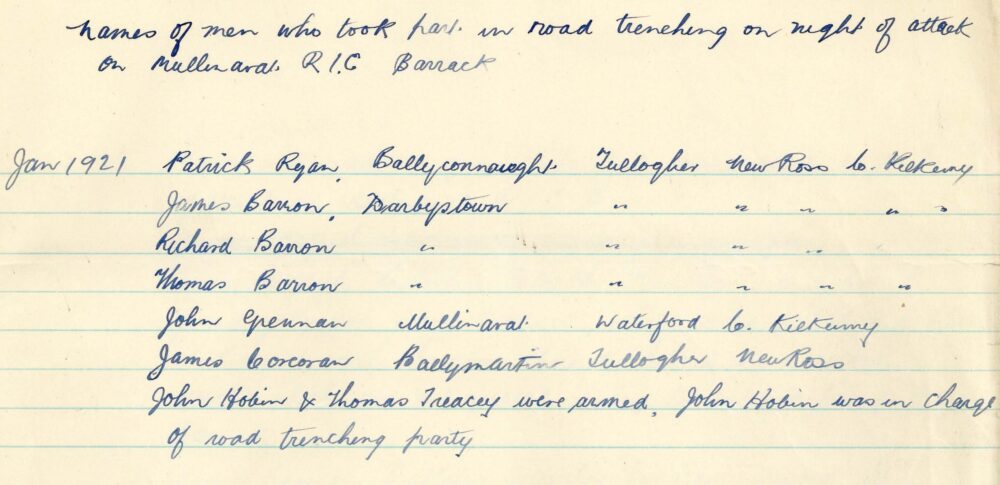 names of men who took part in road trenching on night of attack
on Mullinavat R.I.C Barrack
Jan 1921 Patrick Ryan, Ballyconnaught Tullogher New Ross Co. Kilkenny
James Barron, Darbystown " " " " "
Richard Barron " " " "
Thomas Barron " " " " "
John Grennan Mullinavat Waterford Co. Kilkenny
James Corcoran Ballymartin Tullogher New Ross
John Hobin & Thomas Treacey were armed, John Hobin was in charge
of road trenching party